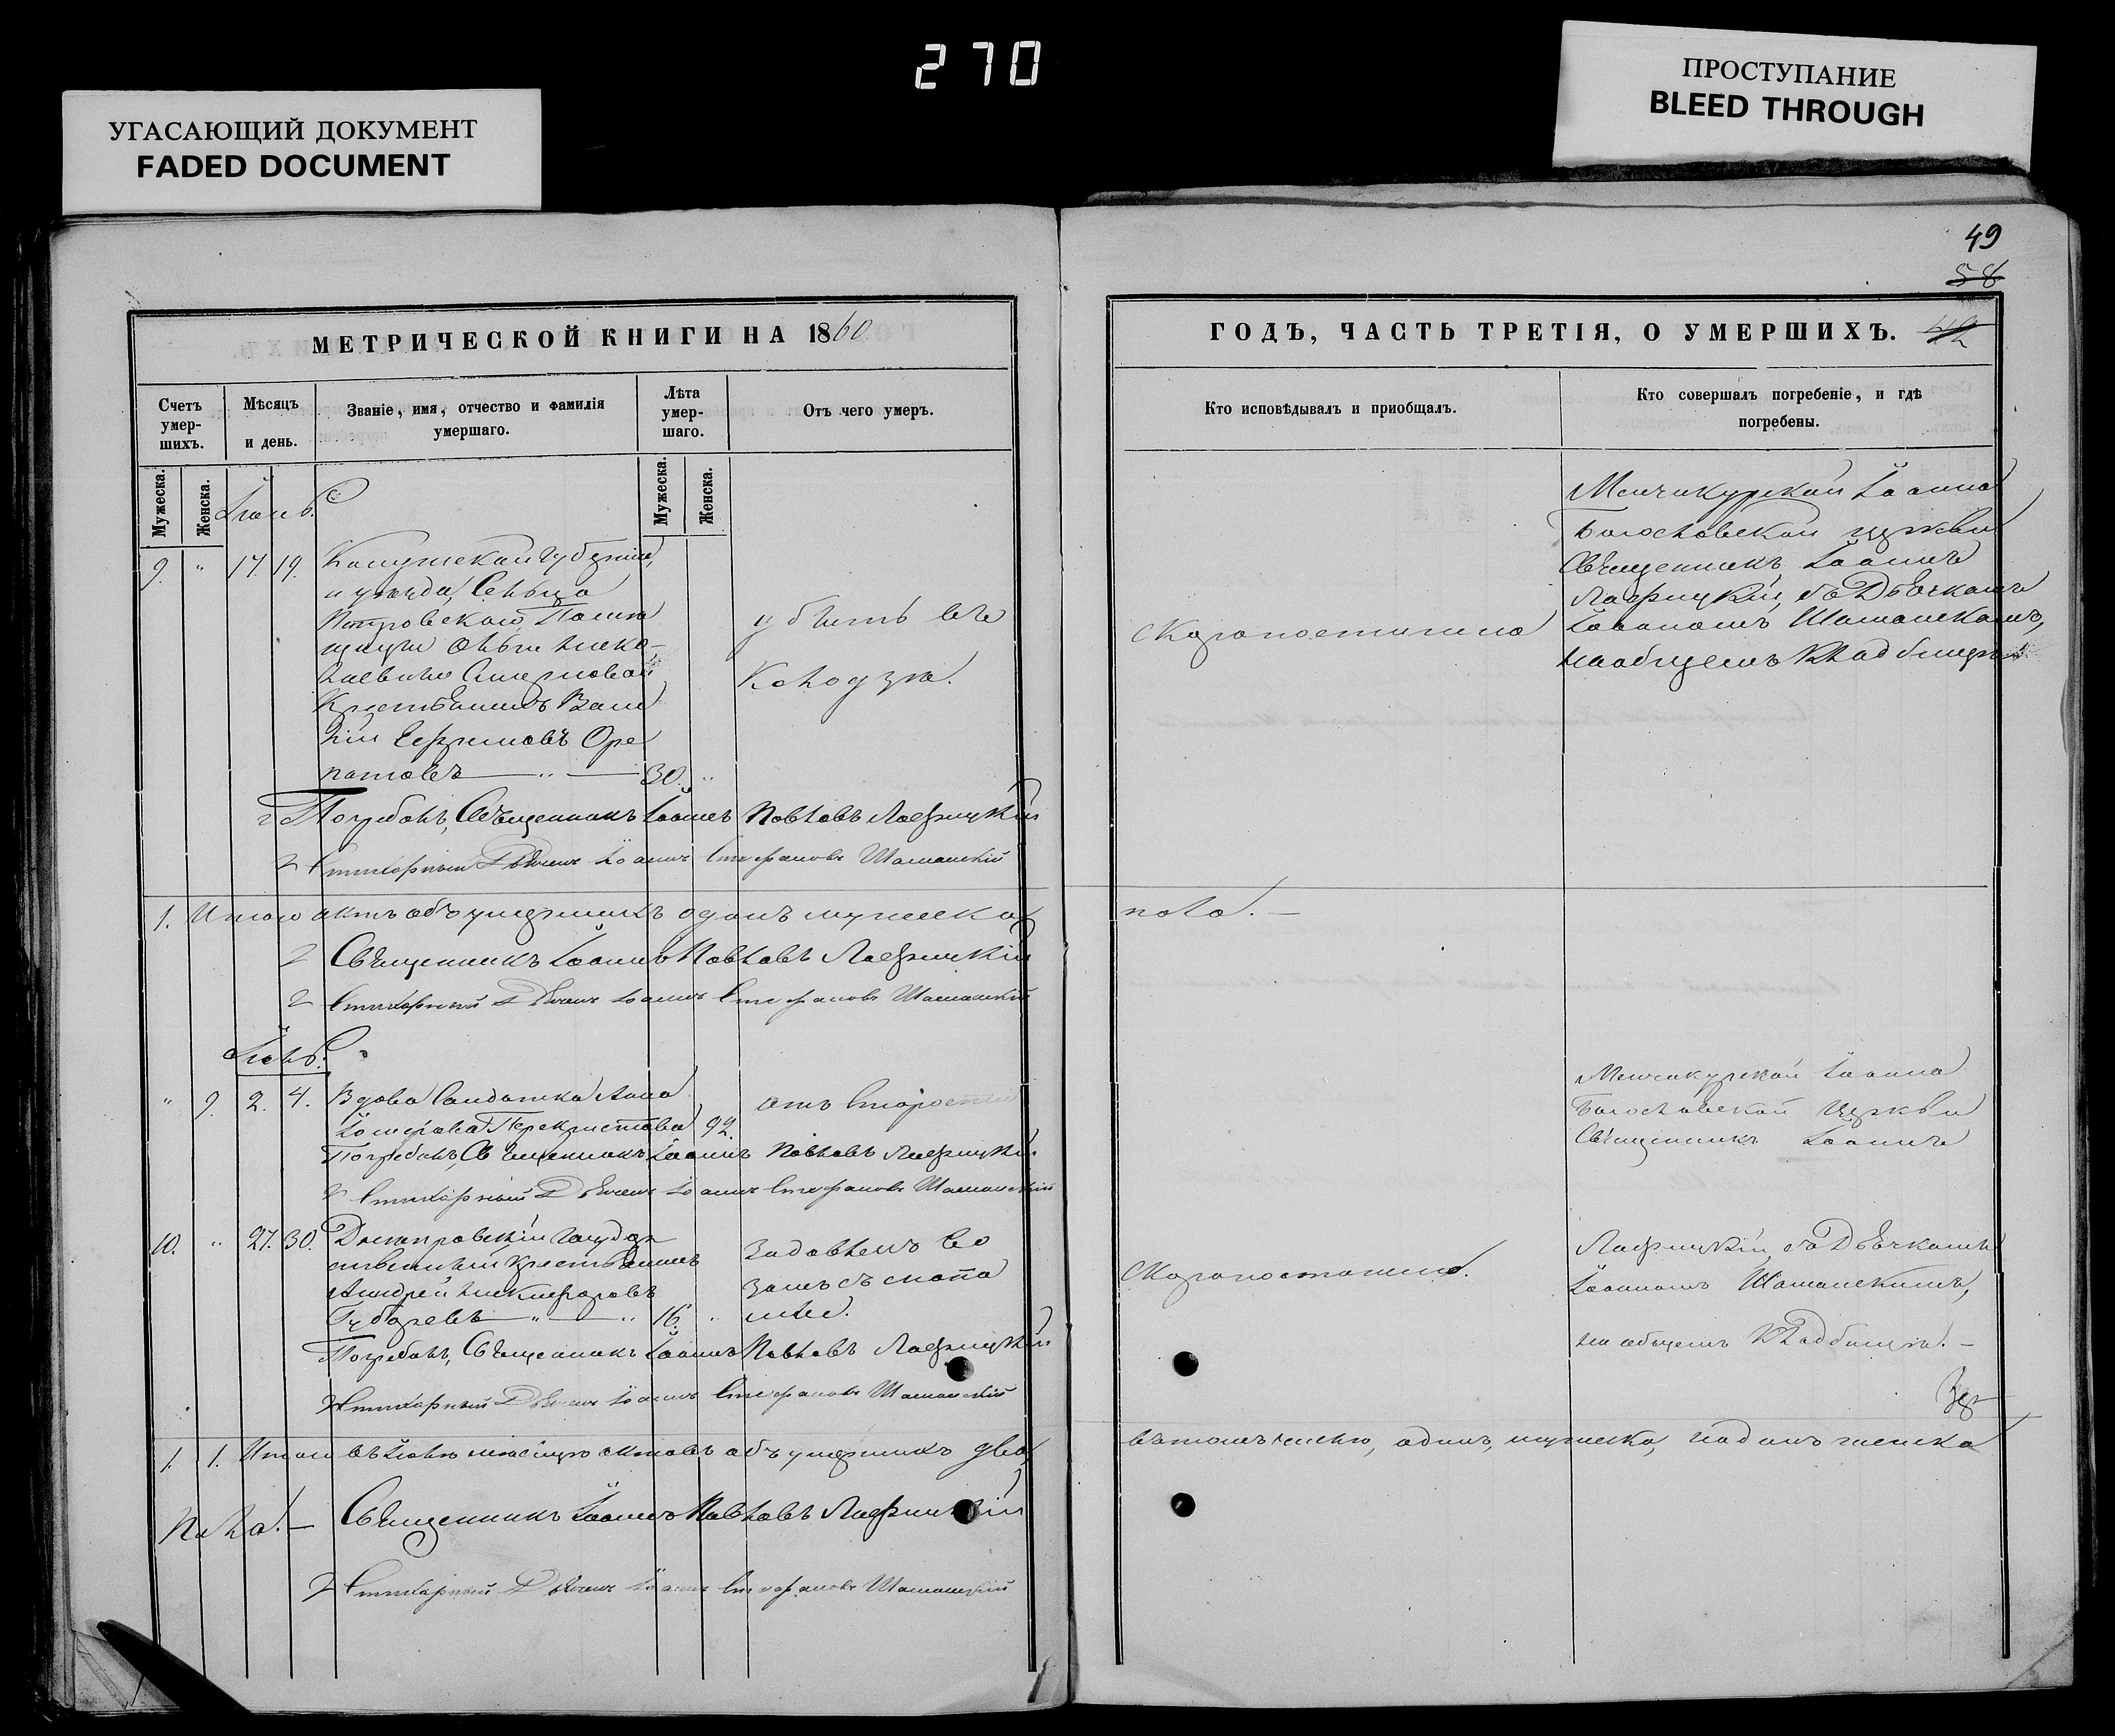 270
УГАСАЮЩИЙ ДОКУМЕНТ
FADED DOCUMENT
ПРОСТУПАНИЕ
BLEED THROUGH
МЕТРИЧЕСКОЙ КНИГИ НА 1860
Счетъ умер-шихъ.
Мѣсяцъ и день.
Званіе, имя, отчество и фамилія умершаго.
Лѣта умер-шаго.
Отъ чего умеръ.
Мужеска.
Женска.
Мужеска.
Женска.
Іюнь.
9. " 17. 19.
Калужской Губерніи,
и уѣзда, Сельца
Петровскаго, Поме
щицы
Смирновой
Крестьянинъ Васи
лій Ефимовъ
30. "
убитъ въ
Колодзѣ.
Погребалъ, Священникъ Іоаннъ Павловъ
Стихарный Дьячекъ Іоаннъ Стефановъ Шаманскій
1. Итого актъ объ умершихъ одинъ мужеска
Священникъ Іоаннъ Павловъ
Стихарный Дьячекъ Іоаннъ Стефановъ Шаманскій
Іюль.
" 9. 2. 4.
Вдова Солдатка Анна
92.
отъ Старости
Погребалъ, Священникъ Іоаннъ Павловъ
Стихарный Дьячекъ Іоаннъ Стефановъ Шаманскій
10. " 27. 30.
Днепровскій Государ
ственный крестьянинъ
Андрей Никифоровъ
Губаревъ " " 16. "
Задавленъ Во
зомъ съ снопа
ми.
Погребалъ, Священникъ Іоаннъ Павловъ
Стихарный Дьячекъ Іоаннъ Стефановъ Шаманскій
1. 1. Итого въ Іюлѣ мѣсяцѣ актовъ объ умершихъ два,
пола. —
Священникъ Іоаннъ Павловъ
Стихарный Дьячекъ Іоаннъ Стефановъ Шаманскій
49
58
42
ГОДЪ, ЧАСТЬ ТРЕТІЯ, О УМЕРШИХЪ.
Кто исповѣдывалъ и приобщалъ.
Кто совершалъ погребеніе, и гдѣ погребены.
Скоропостижно
Менчикурской Іоанно
Богословской церкви
Священникъ Іоаннъ
съ Дьячкомъ
Іоанномъ Шаманскимъ,
на общемъ Кладбищѣ.
пола. —
Менчикурской Іоанно
Богословской Церкви
Священникъ Іоаннъ
Скоропостижно.
съ Дьячкомъ
Іоанномъ Шаманскимъ,
на общемъ Кладбищѣ. —
въ томъ числѣ, одинъ, мужеска, и одинъ женска